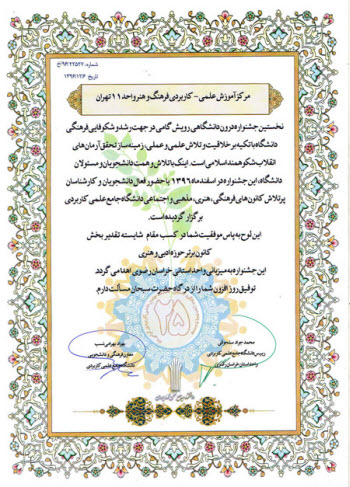 شماره: ۹۶/۲۲۵۲۷/خ
تاریخ ۱۳۹۶/۱۲/۶
مرکز آموزش علمی - کاربردی فرهنگ و هنر واحد ۱۱ تهران
نخستین جشنواره درون دانشگاهی رویش گامی در جهت رشد و شکوفایی فرهنگی
دانشگاه با تکیه بر خلاقیت و تلاش علمی و عملی، زمینه ساز تحقق آرمان های
انقلاب شکوهمند اسلامی است. اینک با تلاش و همت دانشجویان و مسئولان
دانشگاه، این جشنواره در اسفند ماه ۱۳۹۶ با حضور فعال دانشجویان و کارشناسان
پرتلاش کانون های فرهنگی، هنری، مذهبی و اجتماعی دانشگاه جامع علمی کاربردی
برگزار گردیده است.
این لوح به پاس موفقیت شما در کسب مقام شایسته تقدیر بخش
کانون برتر حوزه ادبی و هنری
این جشنواره به میزبانی واحد استانی خراسان رضوی اهدا می گردد.
توفیق روز افزون شما را از درگاه حضرت سبحان مسألت دارم.
محمد جواد
رییس دانشگاه جامع علمی کاربردی
واحد استان خراسان رضوی
بهزاد بهرامی نسب
معاون فرهنگی و دانشجویی
دانشگاه جامع علمی کاربردی
۲۵